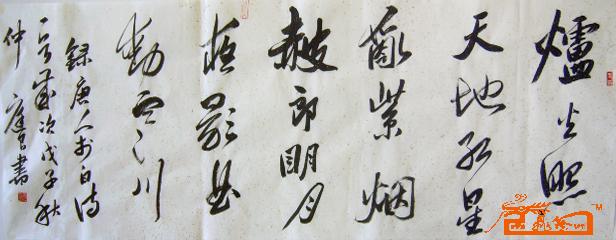 爐火照
天地紅星
亂紫烟
赧郎明月
夜歌曲
動寒川
錄唐人李白诗
一首歲次戊子秋
仲 書
TM